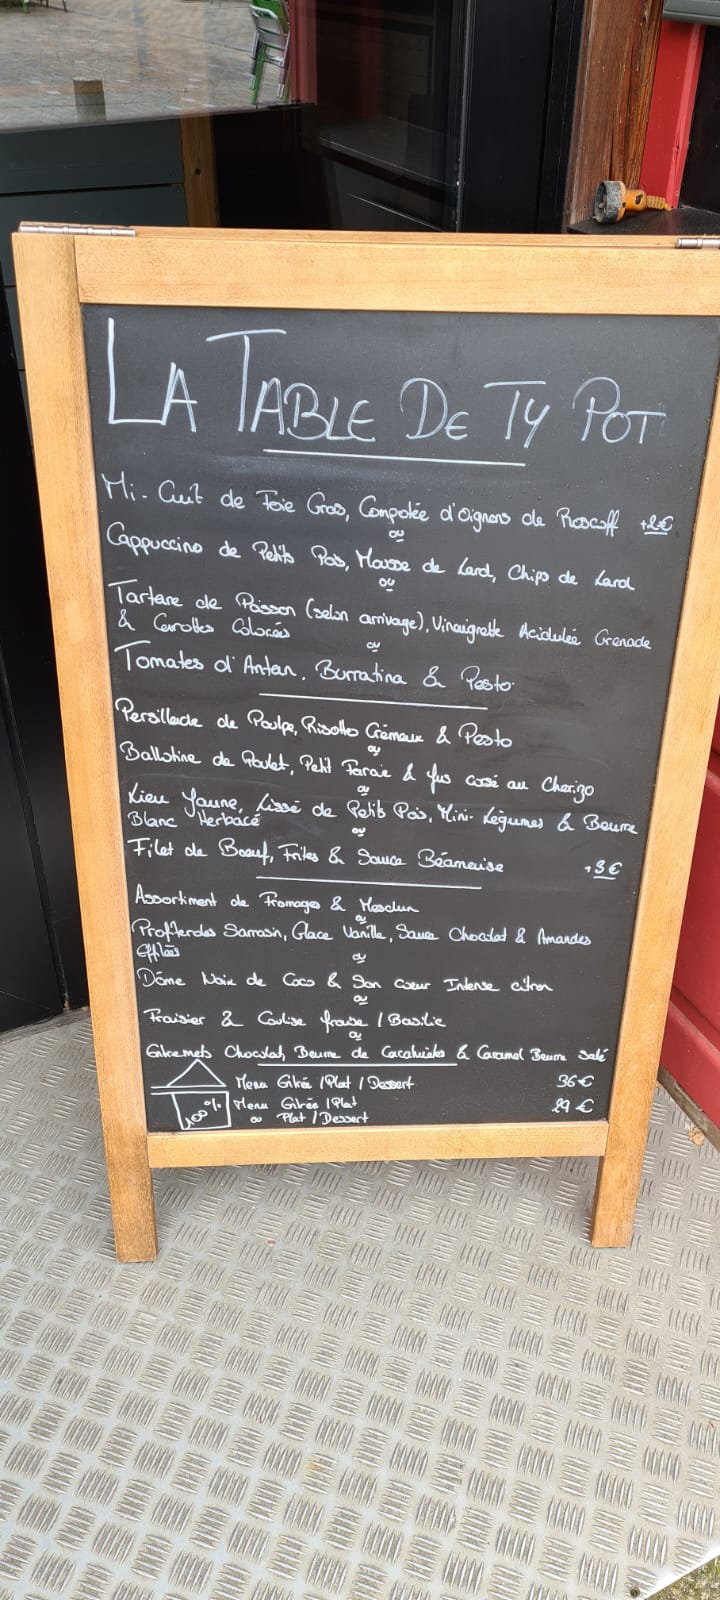 LA TABLE DE TY POT
Mi-Cuit de Foie Gras, Compotée d'Oignons de Roscoff +2€
ou
Cappuccino de Petits Pois, Mousse de Lard, Chips de Lard
ou
Tartare de Poisson (selon arrivage), Vinaigrette Acidulée Grenade
& Carottes Colorées
ou
Tomates d'Antan, Burratina & Pesto
Persillade de Poulpe, Risotto Crémeux & Pesto
ou
Ballotine de Poulet, Petit Farcie & Jus corsé au Chorizo
ou
Lieu Jaune, Lissé de Petits Pois, Mini-Légumes & Beurre
Blanc Herbacé
ou
Filet de Boeuf, Frites & Sauce Béarnaise +3€
Assortiment de Fromages & Mesclun
ou
Profiteroles Sarrasin, Glace Vanille, Sauce Chocolat & Amandes
Effilées
ou
Dôme Noix de Coco & Son cœur Intense citron
ou
Fraisier & Coulise fraise / Basilic
ou
Entremets Chocolat, Beurre de Cacahuètes & Caramel Beurre Salé
Menu Entrée / Plat / Dessert 36€
100% Menu Entrée / Plat 29€
ou Plat / Dessert